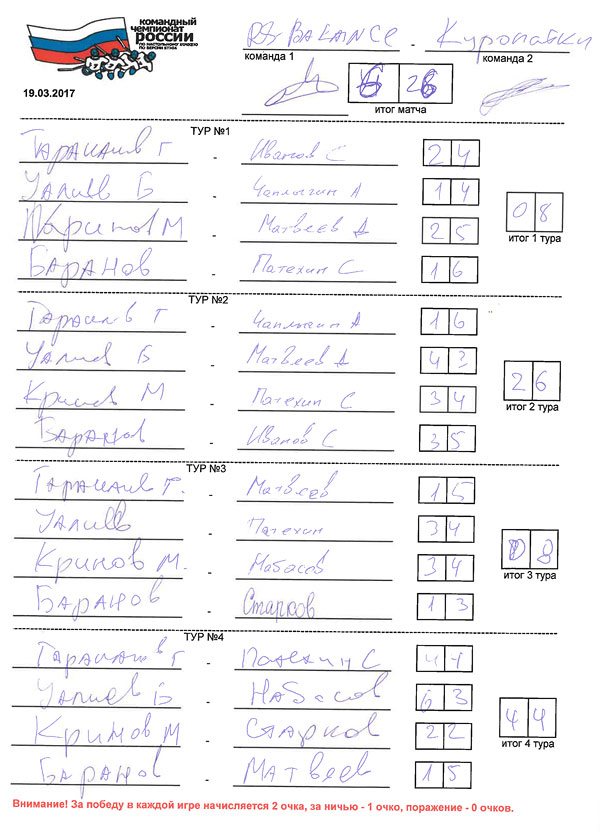 командный
чемпионат
россии
по настольному хоккею
по версии ктхв
19.03.2017
BALANCE - Куропатки
команда 1 команда 2
6 26
итог матча
ТУР №1
Г - Иванов С 2 4
Уалиев Б - Чаплыгин А 1 4
М - Матвеев А 2 5
0 8
итог 1 тура
Баранов - Патехин С 1 6
ТУР №2
Г - Чаплыгин А 1 6
Уалиев Б - Матвеев А 4 3
М - Патехин С 3 4
2 6
итог 2 тура
Баранов - Иванов С 3 5
ТУР №3
Г. - Матвеев 1 5
Уалиев - Патехин 3 4
Кринов М. - 3 4
0 8
итог 3 тура
Баранов - Старков 1 3
ТУР №4
Г - Патехин С 4 4
Уалиев Б - Набасов 6 3
Кринов М - Старков 2 2
4 4
итог 4 тура
Баранов - Матвеев 1 5
Внимание! За победу в каждой игре начисляется 2 очка, за ничью - 1 очко, поражение - 0 очков.